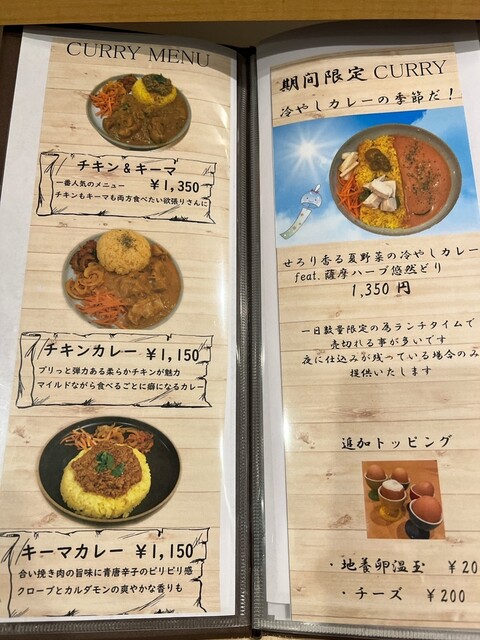 CURRY MENU
チキン＆キーマ
一番人気のメニュー ￥1,350
チキンもキーマも両方食べたい欲張りさんに
チキンカレー ￥1,150
プリっと弾力ある柔らかチキンが魅力
マイルドながら食べるごとに癖になるカレー
キーマカレー ￥1,150
合い挽き肉の旨味に青唐辛子のピリピリ感
クローブとカルダモンの爽やかな香りも
期間限定 CURRY
冷やしカレーの季節だ！
せろり香る夏野菜の冷やしカレー
feat.薩摩ハーブ悠然どり
1,350 円
一日数量限定の為ランチタイムで
売切れる事が多いです
夜に仕込みが残っている場合のみ
提供いたします
追加トッピング
・地養卵温玉 ￥20
・チーズ ￥200